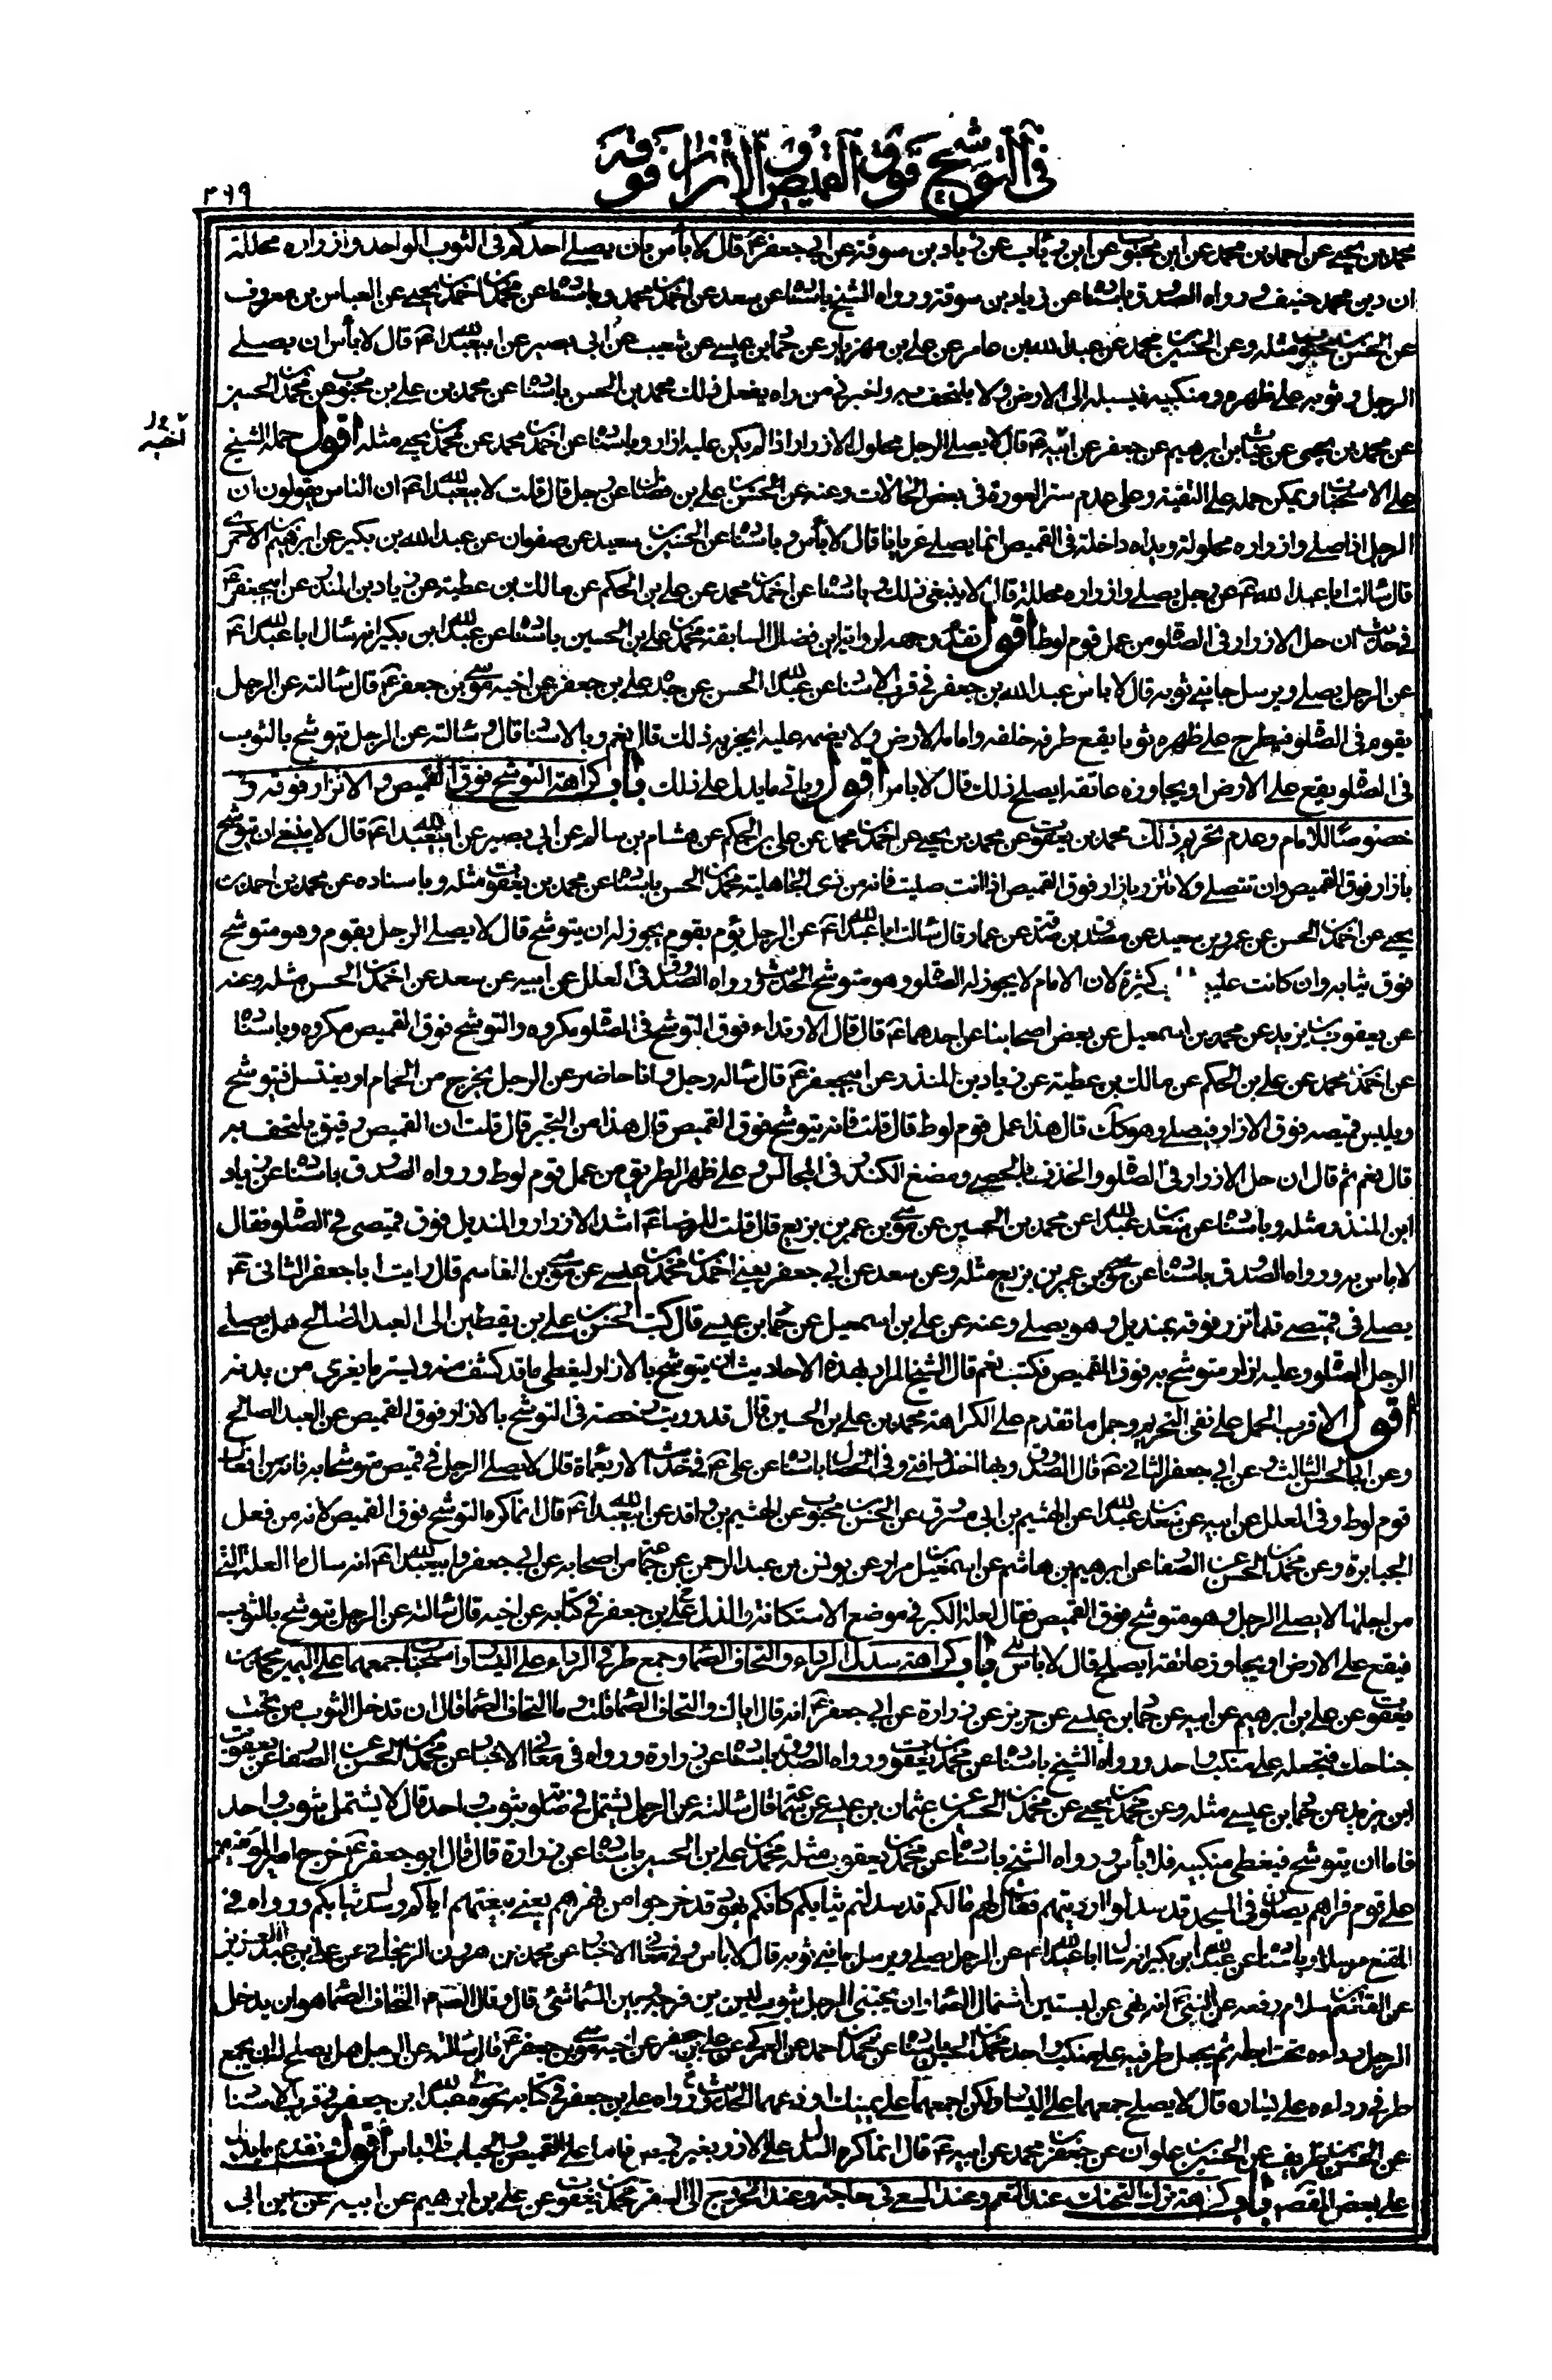 في التوشيح فوق القميص والاتزار فوقه
٢٦٩
محمد بن يحيى عن احمد بن محمد عن ابن محبوب عن ابن رئاب عن زياد بن سوقة عن ابي جعفر ع قال لا بأس بان يصلي احدكم في الثوب الواحد وازراره محللة
ان دين محمد حنيف ورواه الصدوق باسناده عن زياد بن سوقة ورواه الشيخ باسناده عن سعد عن احمد بن محمد وباسناده عن محمد بن احمد بن يحيى عن العباس بن معروف
عن الحسن بن محبوب مثله وعن الحسين بن محمد عن عبد الله بن عامر عن علي بن مهزيار عن حماد بن عيسى عن شعيب عن ابي بصير عن ابيعبد الله ع قال لا بأس ان يصلي
الرجل وثوبه على ظهره ومنكبيه فيسبله الى الارض ولا يلتحف به واخبرني من راه يفعل ذلك محمد بن الحسن باسناده عن محمد بن علي بن محبوب عن محمد بن الحسين
عن محمد بن يحيى عن غياث بن ابرهيم عن جعفر عن ابيه ع قال لا يصلي الرجل محلول الازرار اذا لم يكن عليه ازار وباسناده عن احمد بن محمد عن محمد بن يحيى مثله اقول حمله الشيخ
على الاستحباب ويمكن حمله على التقية وعلى عدم ستر العورة في بعض الحالات وعنه عن الحسن بن علي بن فضال عن رجل قال قلت لابيعبد الله ع ان الناس يقولون ان
الرجل اذا صلى وازراره محلولة ويداه داخلة في القميص انما يصلي عريانا قال لا بأس وباسناده عن الحسين بن سعيد عن صفوان عن عبد الله بن بكير عن ابرهيم الاحمري
قال سالت ابا عبد الله ع عن رجل يصلي وازراره محللة قال لا ينبغي ذلك وباسناده عن احمد بن محمد عن علي بن الحكم عن مالك بن عطية عن زياد بن المنذر عن ابيجعفر ع
في حديث ان حل الازرار في الصلوة من عمل قوم لوط اقول تقدم وجهه لرواية ابن فضال السابقة محمد بن علي بن الحسين باسناده عن عبد الله بن بكير انه سأل ابا عبد الله ع
عن الرجل يصلي ويرسل جانبي ثوبه قال لا باس عبد الله بن جعفر في قرب الاسناد عن عبد الله بن الحسن عن جده علي بن جعفر عن اخيه موسى بن جعفر ع قال سالته عن الرجل
يقوم في الصلوة فيطرح على ظهره ثوبا يقع طرفه خلفه وامامه الارض ولا يضمه عليه ايجزيه ذلك قال نعم وبالاسناد قال وسالته عن الرجل يتوشح بالثوب
في الصلوة يقع على الارض او يجاوز عاتقه ايصلح ذلك قال لا باس اقول وياتي ما يدل على ذلك باب كراهة التوشح فوق القميص والاتزار فوقه و
خصوصا للامام وعدم تحريم ذلك محمد بن يعقوب عن محمد بن يحيى عن احمد بن محمد عن علي بن الحكم عن هشام بن سالم عن ابي بصير عن ابيعبد الله ع قال لا ينبغي ان يتوشح
بازار فوق القميص وان تصلي ولا تتزر بازار فوق القميص اذا انت صليت فانه من زي الجاهلية محمد بن الحسن باسناده عن محمد بن يعقوب مثله وباسناده عن محمد بن احمد بن
يحيى عن احمد بن الحسن عن عمرو بن سعيد عن مصدق بن صدقة عن عمار قال سالت ابا عبد الله ع عن الرجل يؤم بقوم يجوز له ان يتوشح قال لا يصلي الرجل بقوم وهو متوشح
فوق ثيابه وان كانت عليه كثيرة لان الامام لا يجوز له الصلوة وهو متوشح الحديث ورواه الصدوق في العلل عن ابيه عن سعد عن احمد بن الحسن مثله وعنه
عن يعقوب بن يزيد عن محمد بن اسمعيل عن بعض اصحابنا عن احدهما ع قال قال الارتداء فوق التوشح في الصلوة مكروه والتوشح فوق القميص مكروه وباسناده
عن احمد بن محمد عن علي بن الحكم عن مالك بن عطية عن زياد بن المنذر عن ابيجعفر ع قال ساله رجل وانا حاضر عن الرجل يخرج من الحمام او يغتسل فيتوشح
ويلبس قميصه فوق الازار فيصلي وهو كك قال هذا عمل قوم لوط قال قلت فانه يتوشح فوق القميص قال هذا من التجبر قال قلت ان القميص رقيق يلتحف به
قال نعم ثم قال ان حل الازرار في الصلوة والخذف بالحصى ومضغ الكندر في المجالس وعلى ظهر الطريق من عمل قوم لوط ورواه الصدوق باسناده عن زياد
ابن المنذر مثله وباسناده عن سعد بن عبد الله عن محمد بن الحسين عن موسى بن عمر بن بزيع قال قلت للرضا ع اشد الازار والمنديل فوق قميصي في الصلوة فقال
لا باس به ورواه الصدوق باسناده عن موسى بن عمر بن بزيع مثله وعن سعد عن ابي جعفر يعني احمد بن محمد بن عيسى عن موسى بن القاسم قال رايت ابا جعفر الثاني ع
يصلي في قميص قد اتزر فوقه بمنديل وهو يصلي وعنه عن علي بن اسمعيل عن حماد بن عيسى قال كتب الحسن بن علي بن يقطين الى العبد الصالح هل يصلي
الرجل الصلوة وعليه ازار متوشح به فوق القميص فكتب نعم قال الشيخ المراد بهذه الاحاديث ان يتوشح بالازار ليغطي ما قد كشف منه ويستر ما يعري من بدنه
اقول الاقرب الحمل على نفي التحريم وحمل ما تقدم على الكراهة محمد بن علي بن الحسين قال قد رويت رخصة في التوشح بالازار فوق القميص عن العبد الصالح
وعن ابي الحسن الثالث وعن ابي جعفر الثاني ع قال الصدوق وبها اخذ وافتي وفي الخصال باسناده عن علي ع في حديث الاربعمائة قال لا يصلي الرجل في قميص متوشحا به فانه من افعال
قوم لوط وفي العلل عن ابيه عن سعد بن عبد الله عن الهيثم بن ابي مسروق عن الحسن بن محبوب عن الهيثم بن واقد عن ابيعبد الله ع قال انما كره التوشح فوق القميص لانه من فعل
الجبابرة وعن محمد بن الحسن عن الصفار عن ابرهيم بن هاشم عن اسمعيل بن مرار عن يونس بن عبد الرحمن عن جماعة من اصحابه عن ابي جعفر وابيعبد الله ع انه سئل ما العلة التي
من اجلها لا يصلي الرجل وهو متوشح فوق القميص فقال لعلة الكبر في موضع الاستكانة والذل علي بن جعفر في كتابه عن اخيه قال سالته عن الرجل يتوشح بالثوب
فيقع على الارض او يجاوز عاتقه ايصلح قال لا باس باب كراهة سدل الرداء والتحاف الصماء وجمع طرفي الرداء على اليسار واستحباب جمعهما على اليمين محمد بن
يعقوب عن علي بن ابرهيم عن ابيه عن حماد بن عيسى عن حريز عن زرارة عن ابي جعفر ع انه قال اياك والتحاف الصماء قلت وما التحاف الصماء قال ان تدخل الثوب من تحت
جناحك فتجعله على منكب واحد ورواه الشيخ باسناده عن محمد بن يعقوب ورواه الصدوق باسناده عن زرارة ورواه في معاني الاخبار عن محمد بن الحسن عن الصفار عن يعقوب
ابن يزيد عن حماد بن عيسى مثله وعن محمد بن يحيى عن محمد بن الحسين عن عثمان بن عيسى عن سماعة قال سالته عن الرجل يشتمل في صلوته بثوب واحد قال لا يشتمل بثوب واحد
فاما ان يتوشح فيغطي منكبيه فلا بأس ورواه الشيخ باسناده عن محمد بن يعقوب مثله محمد بن علي بن الحسين باسناده عن زرارة قال قال ابو جعفر ع خرج امير المؤمنين
على قوم فراهم يصلون في المسجد قد سدلوا ارديتهم فقال لهم مالكم قد سدلتم ثيابكم كانكم يهود قد خرجوا من فهرهم يعني بيعتهم اياكم وسدل ثيابكم ورواه في
المقنع مرسلا وباسناده عن عبد الله بن بكير انه سال ابا عبد الله ع عن الرجل يصلي ويرسل جانبي ثوبه قال لا باس وفي معاني الاخبار عن محمد بن هرون الزنجاني عن علي بن عبد العزيز
عن القاسم بن سلام رفعه عن النبي ص انه نهى عن لبستين اشتمال الصماء وان يحتبي الرجل بثوب ليس بين فرجه وبين السماء شئ قال وقال الصادق ع التحاف الصماء هو ان يدخل
الرجل رداءه تحت ابطه ثم يجعل طرفيه على منكب واحد محمد بن الحسن باسناده عن محمد بن احمد عن العمركي عن علي بن جعفر عن اخيه موسى بن جعفر ع قال سالته عن الرجل هل يصلح له ان يجمع
طرفي رداءه على يساره قال لا يصلح جمعهما على اليسار ولكن اجمعهما على يمينك او دعهما الحديث ورواه علي بن جعفر في كتابه نحوه عبد الله بن جعفر في قرب الاسناد
عن الحسن بن ظريف عن الحسين بن علوان عن جعفر بن محمد عن ابيه ع قال انما كره السدل على الازر بغير قميص فاما على القميص والجباب فلا باس اقول تقدم ما يدل
على بعض المقصود باب كراهة ترك التحنك عند التعمم وعند السعي في حاجة وعند الخروج الى السفر محمد بن يعقوب عن علي بن ابرهيم عن ابيه عن ابن ابي